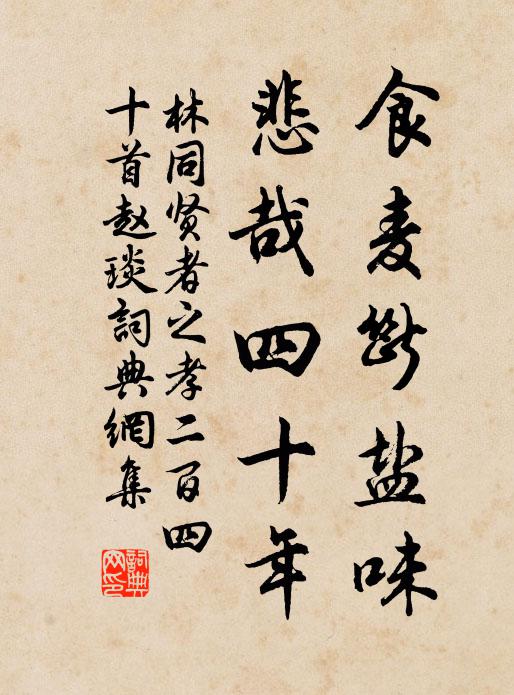 食麦斷盐味
悲哉四十年
林同贤者之孝二百四
十首赵琰詞典網集
詞典网印